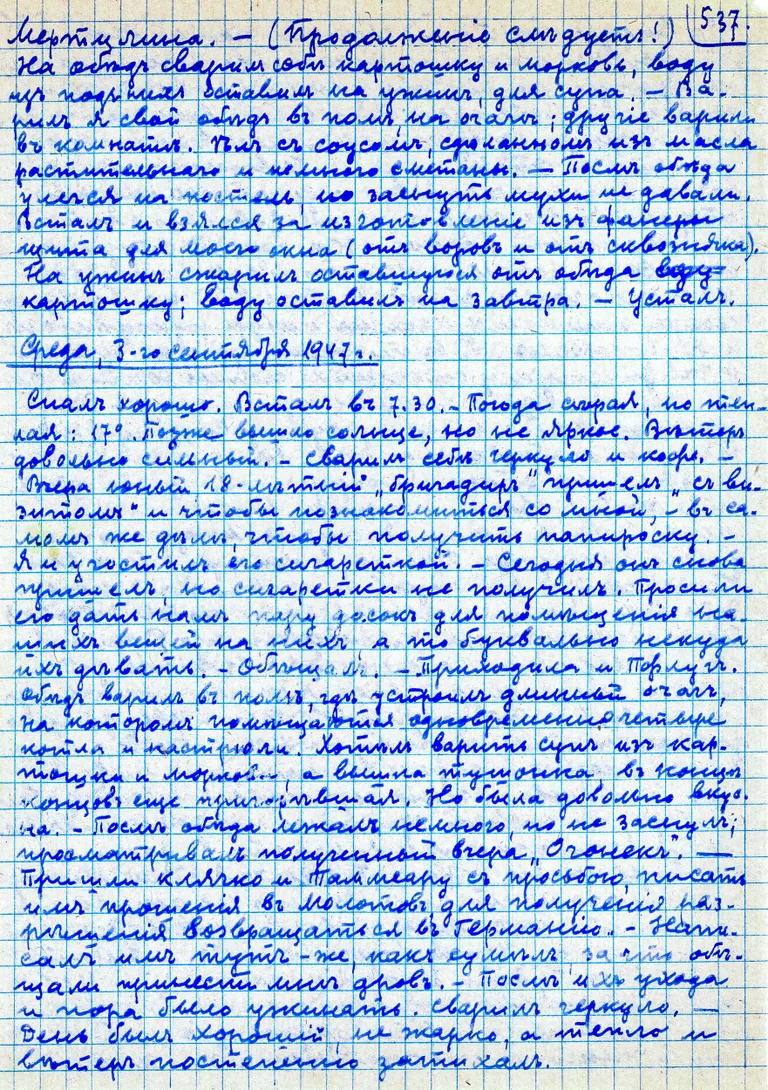 537.
Мертулина. — (Продолженіе слѣдуетъ!)
На обѣдъ сварили собѣ картошку и морковь, воду
изъ подъ нихъ оставили на ужинъ, для супа. — Ва-
рилъ я свой обѣдъ въ полѣ, на очагѣ; другіе варили
въ комнатѣ. Ѣлъ съ соусомъ, сдѣланномъ изъ масла
растительнаго и немного сметаны. — Послѣ обѣда
улегся на постель, но заснуть мухи не давали.
Всталъ и взялся за изготовленіе изъ фанеры
щита для моего окна (отъ воровъ и отъ сквозняка).
На ужинъ сжарилъ оставшуюся отъ обѣда воду
картошку; воду оставилъ на завтра. — Усталъ.
Среда, 3-го сентября 1947 г.
Спалъ хорошо. Всталъ въ 7.30. — Погода сѣрая, но теп-
лая: 17°. Позже вышло солнце, но не яркое. Вѣтеръ
довольно сильный. — Сварилъ себѣ геркуло и кофе. —
Вчера юный 18-лѣтній „бригадиръ" пришелъ „съ ви-
зитомъ" и чтобы познакомиться со мной, — въ са-
момъ же дѣлѣ, чтобы получить папироску. —
Я и угостилъ его сигареткой. — Сегодня онъ снова
пришелъ, но сигаретки не получилъ. Просили
его дать намъ пару досокъ для помѣщенія на-
шихъ вещей на нихъ, а то буквально некуда
ихъ дѣвать. — Обѣщалъ. — Приходила и
Обѣдъ варилъ въ полѣ, гдѣ устроилъ длинный очагъ,
на которомъ помѣщаются одновременно четыре
котла и кастрюли. Хотѣлъ варить супъ изъ кар-
тошки и моркови, а вышла тушонка, въ концѣ
концовъ еще пригорѣвшая. Но была довольно вкус-
на. — Послѣ обѣда лежалъ немного, но не заснулъ;
просматривалъ полученный вчера „Огонекъ". —
Пришли Клячко и Таммеару съ просьбою писать
имъ прошенія въ Молотовъ, для полученія раз-
рѣшенія возвращаться въ Германію. — Напи-
салъ имъ тутъ-же, какъ сумѣлъ, за что обѣ-
щали принести мнѣ дровъ. — Послѣ ихъ ухода
и пора было ужинать. Сварилъ геркуло. —
День былъ хорошій, не жарко, а тепло и
вѣтеръ постепенно затихалъ.